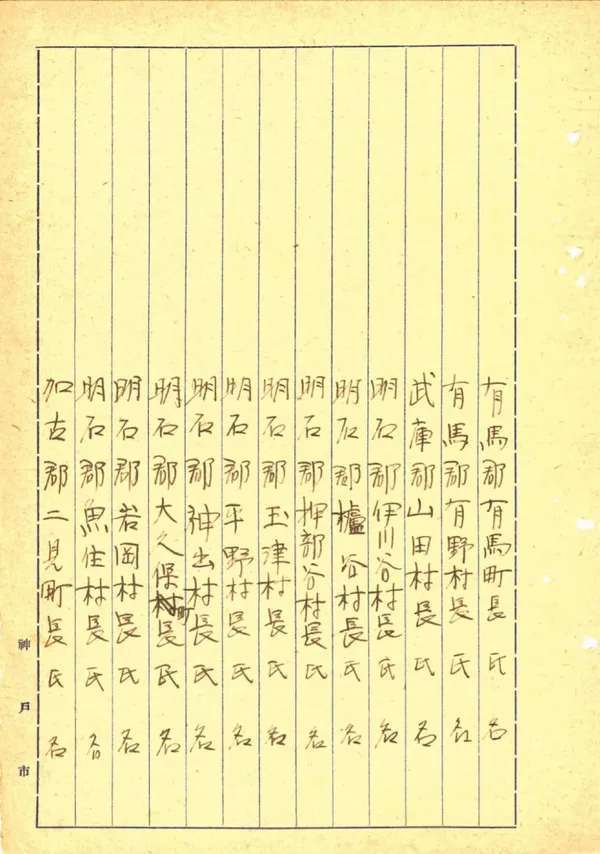 有馬郡有馬町長氏名
有馬郡有野村長氏名
武庫郡山田村長氏名
明石郡伊川谷村長氏名
明石郡櫨谷村長氏名
明石郡押部谷村長氏名
明石郡玉津村長氏名
明石郡平野村長氏名
明石郡神出村長氏名
明石郡大久保町長氏名
明石郡岩岡村長氏名
明石郡魚住村長氏名
加古郡二見町長氏名
神戸市